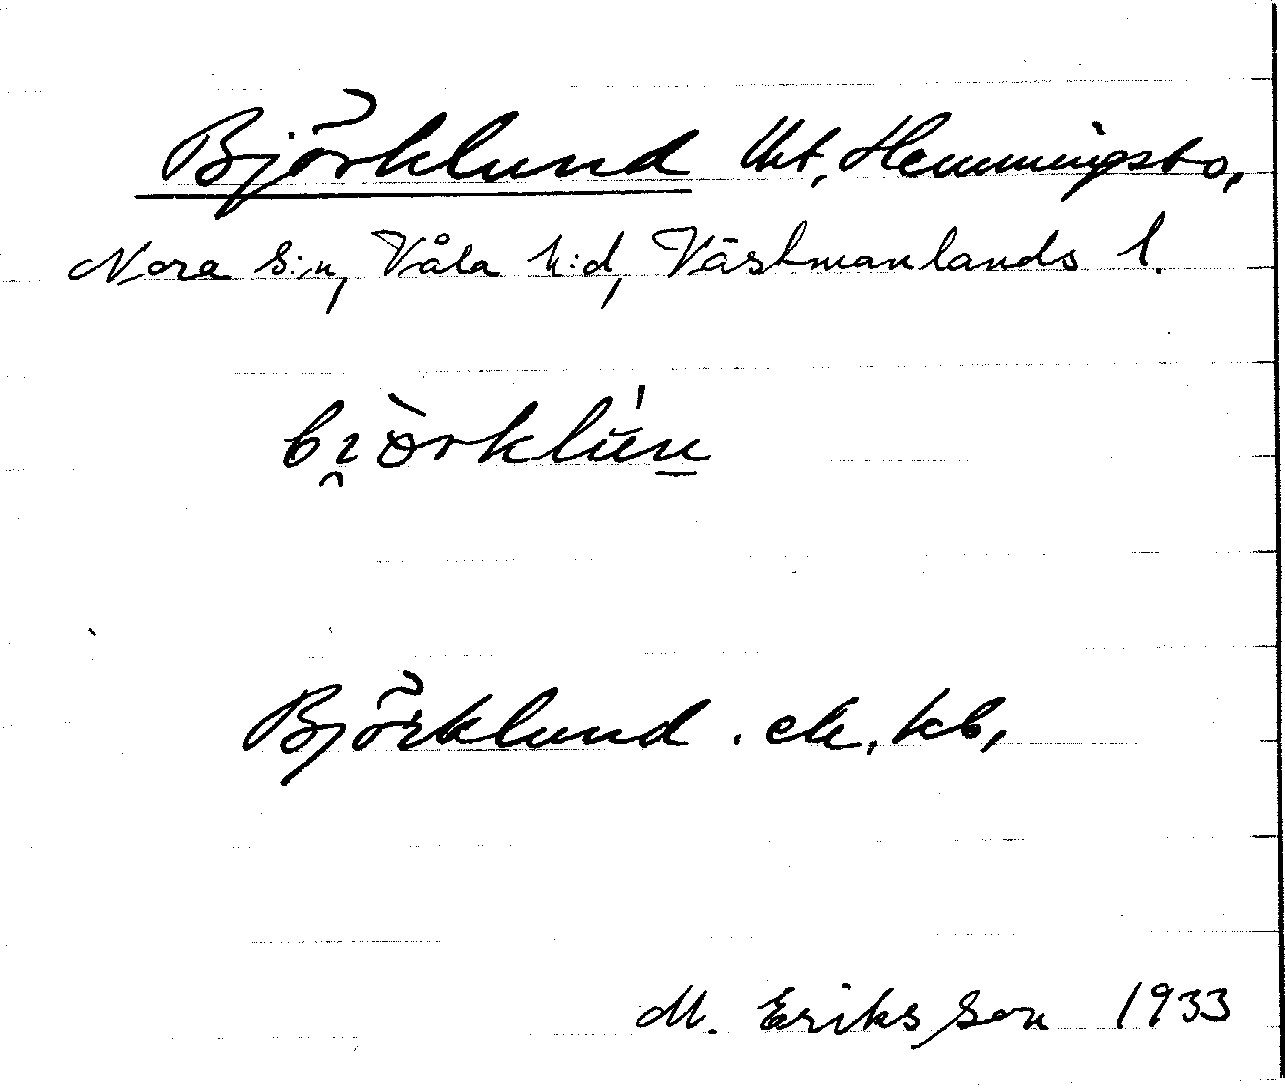 Björklund Uht, Hemmingsbo,
Nora s:n, Våla h:d, Västmanlands l.
björklún
Björklund . ek. kb,
M. Eriksson 1933